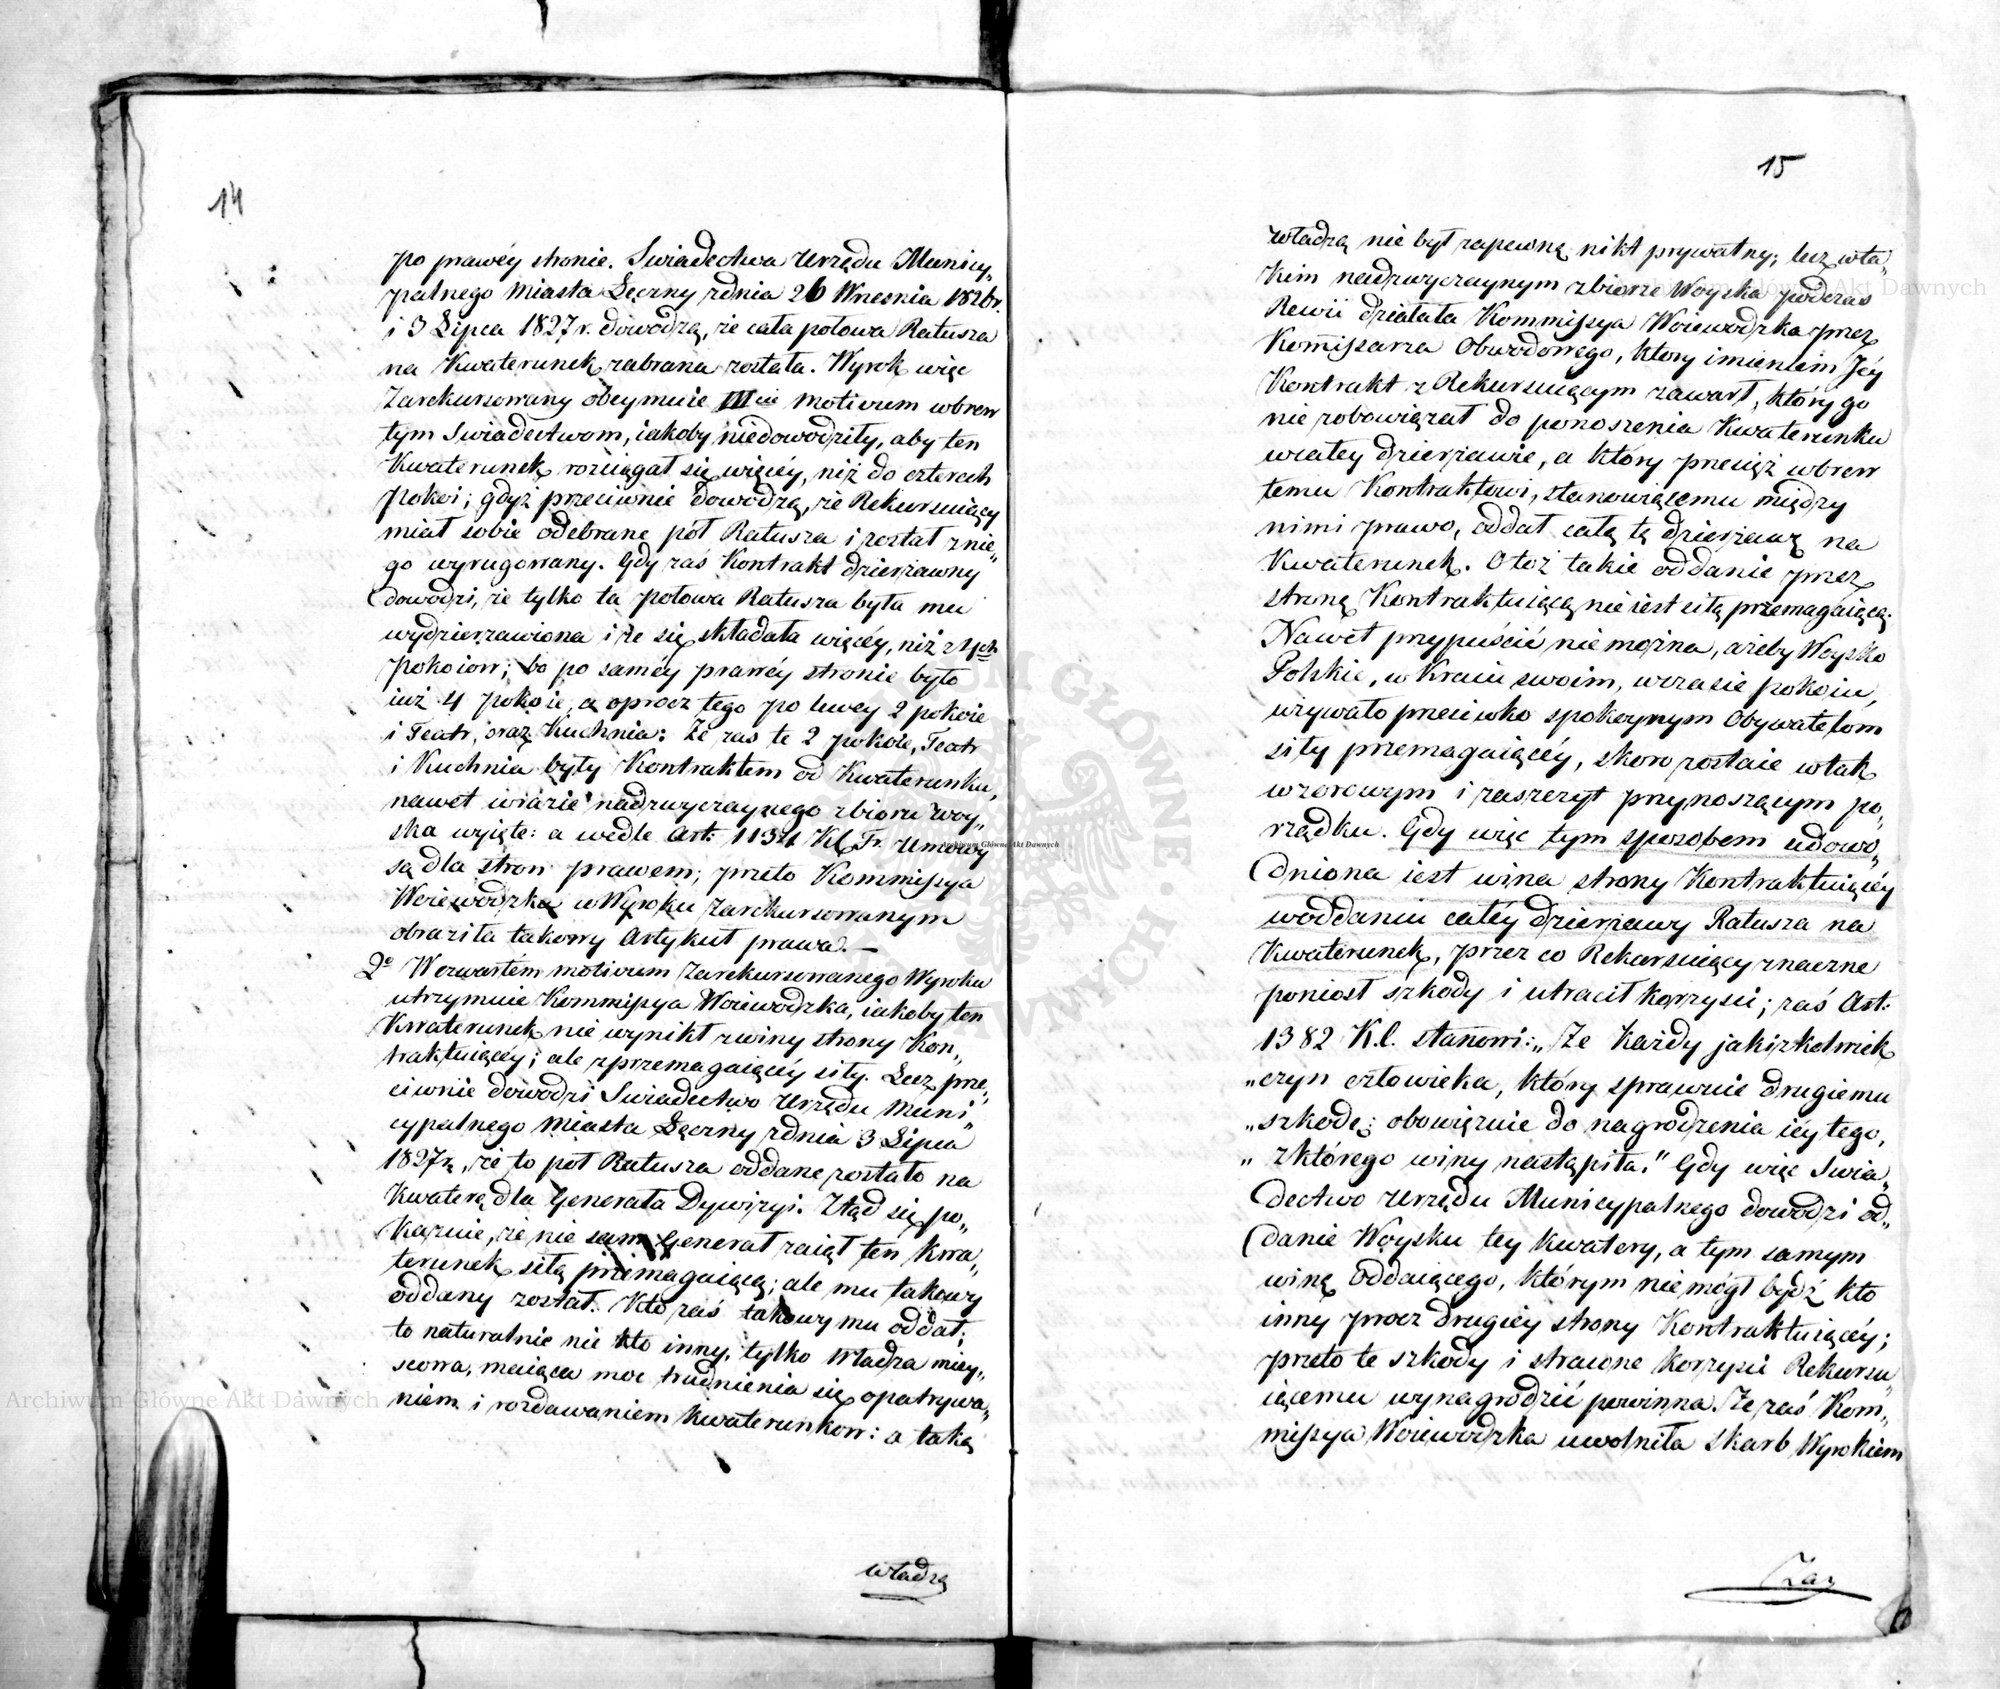 14
po prawéy stronie. Swiadectwa Urzędu Municy„
palnego Miasta Łęczny zdnia 26 Wrzesnia 1826 r.
i 3 Lipca 1827 r. dowodzą, że cała połowa Ratusza
na Kwaterunek zabrana została. Wyrok więc
Zarekursowany obeymuie III cie Motivum wbrew
tym Swiadectwom, iakoby niedowodziły, aby ten
Kwaterunek rozciągał się więcéy, niż do czterech
Pokoi; gdyż przeciwnie dowodzą, że Rekursuiący
miał sobie odebrane pół Ratusza i został znie„
go wyrugowany. Gdy zaś Kontrakt dzierżawny
dowodzi, że tylko ta połowa Ratusza była mu
wydzierżawiona i że się składała więcéy, niż z 4ch
Pokoiow; bo po saméy prawéy stronie było
iuż 4 pokoie, a oprocz tego po lewey 2 pokoie
i Teatr, oraz Kuchnia: Że zas te 2 pokoie, Teatr
i Kuchnia były Kontraktem od Kwaterunku,
nawet wrazie nadzwyczaynego zbioru Woy„
ska wyięte: a wedle Art: 1134 K. Fr. Umowy
są dla stron prawem; przeto Kommissya
Woiewodzka w Wyroku zarekursowanym
obraziła takowy Artykuł prawa. —
2o Wczwartém motivum zarekursowanego Wyroku
utrzymuie Kommissya Woiewodzka, iakoby ten
Kwaterunek nie wynikł zwiny strony Kon„
traktuiącéy; ale zprzemagaiącéy siły. Lecz prze„
ciwnie dowodzi Swiadectwo Urzędu Muni„
cypalnego Miasta Łęczny zdnia 3 Lipca
1827 r., że to pół Ratusza oddane zostało na
Kwaterę dla Generała Dywizyi. Ztąd się po„
kazuie, że nie sam Generał zaiął ten Kwa„
terunek siłą przemagaiącą; ale mu takowy
oddany został. Kto zaś takowy mu oddał;
to naturalnie nie kto inny, tylko Władza miey„
scowa, maiąca moc trudnienia się opatrywa„
niem i rozdawaniem Kwaterunkow: a taką
władzą
15
władzą nie był zapewną nikt prywatny; lecz wta„
kim nadzwyczaynym zbiorze Woyska podczas
Rewii działała Kommissya Woiewodzka przez
Komissarza Obwodowego, ktory imieniem Jéy
Kontrakt z Rekursuiącym zawarł, który go
nie zobowiązał do ponoszenia Kwaterunku
wcałey dzierżawie, a który przecież wbrew
temu Kontraktowi, stanowiącemu między
nimi prawo, oddał całą tę dzierżawę na
Kwaterunek. Otoż takie oddanie przez
stronę Kontraktuiącą nie iest siłą przemagaiącą.
Nawet przypuścić nie można, ażeby Woysko
Polskie, w Kraiu swoim, wczasie pokoiu,
używało przeciwko spokoynym Obywatelom
siły przemagaiącéy, skoro zostaie wtak
wzorowym i zaszczyt przynoszącym po„
rządku. Gdy więc tym sposobem udowo„
dniona iest wina strony Kontraktuiącéy
woddaniu całéy dzierżawy Ratusza na
Kwaterunek, przez co Rekursuiący znaczne
poniosł szkody i utracił korzysci; zaś Art:
1382 K.C. stanowi: „Że każdy jakiżkolwiek
„czyn człowieka, który sprawuie drugiemu
„szkodę; obowięzuie do nagrodzenia iéy tego,
„zktórego winy nastąpiła." Gdy więc Swia„
dectwo Urzędu Municypalnego dowodzi od„
danie Woysku tey Kwatery, a tym samym
winę oddaiącego, którym nie mógł bydź kto
inny procz drugiéy strony Kontraktuiącéy;
przeto te szkody i stracone korzysci Rekursu„
iącemu wynagrodzić powinna. Że zaś Kom„
missya Woiewodzka uwolniła Skarb Wyrokiem
Zar
Archiwum Główne Akt Dawnych